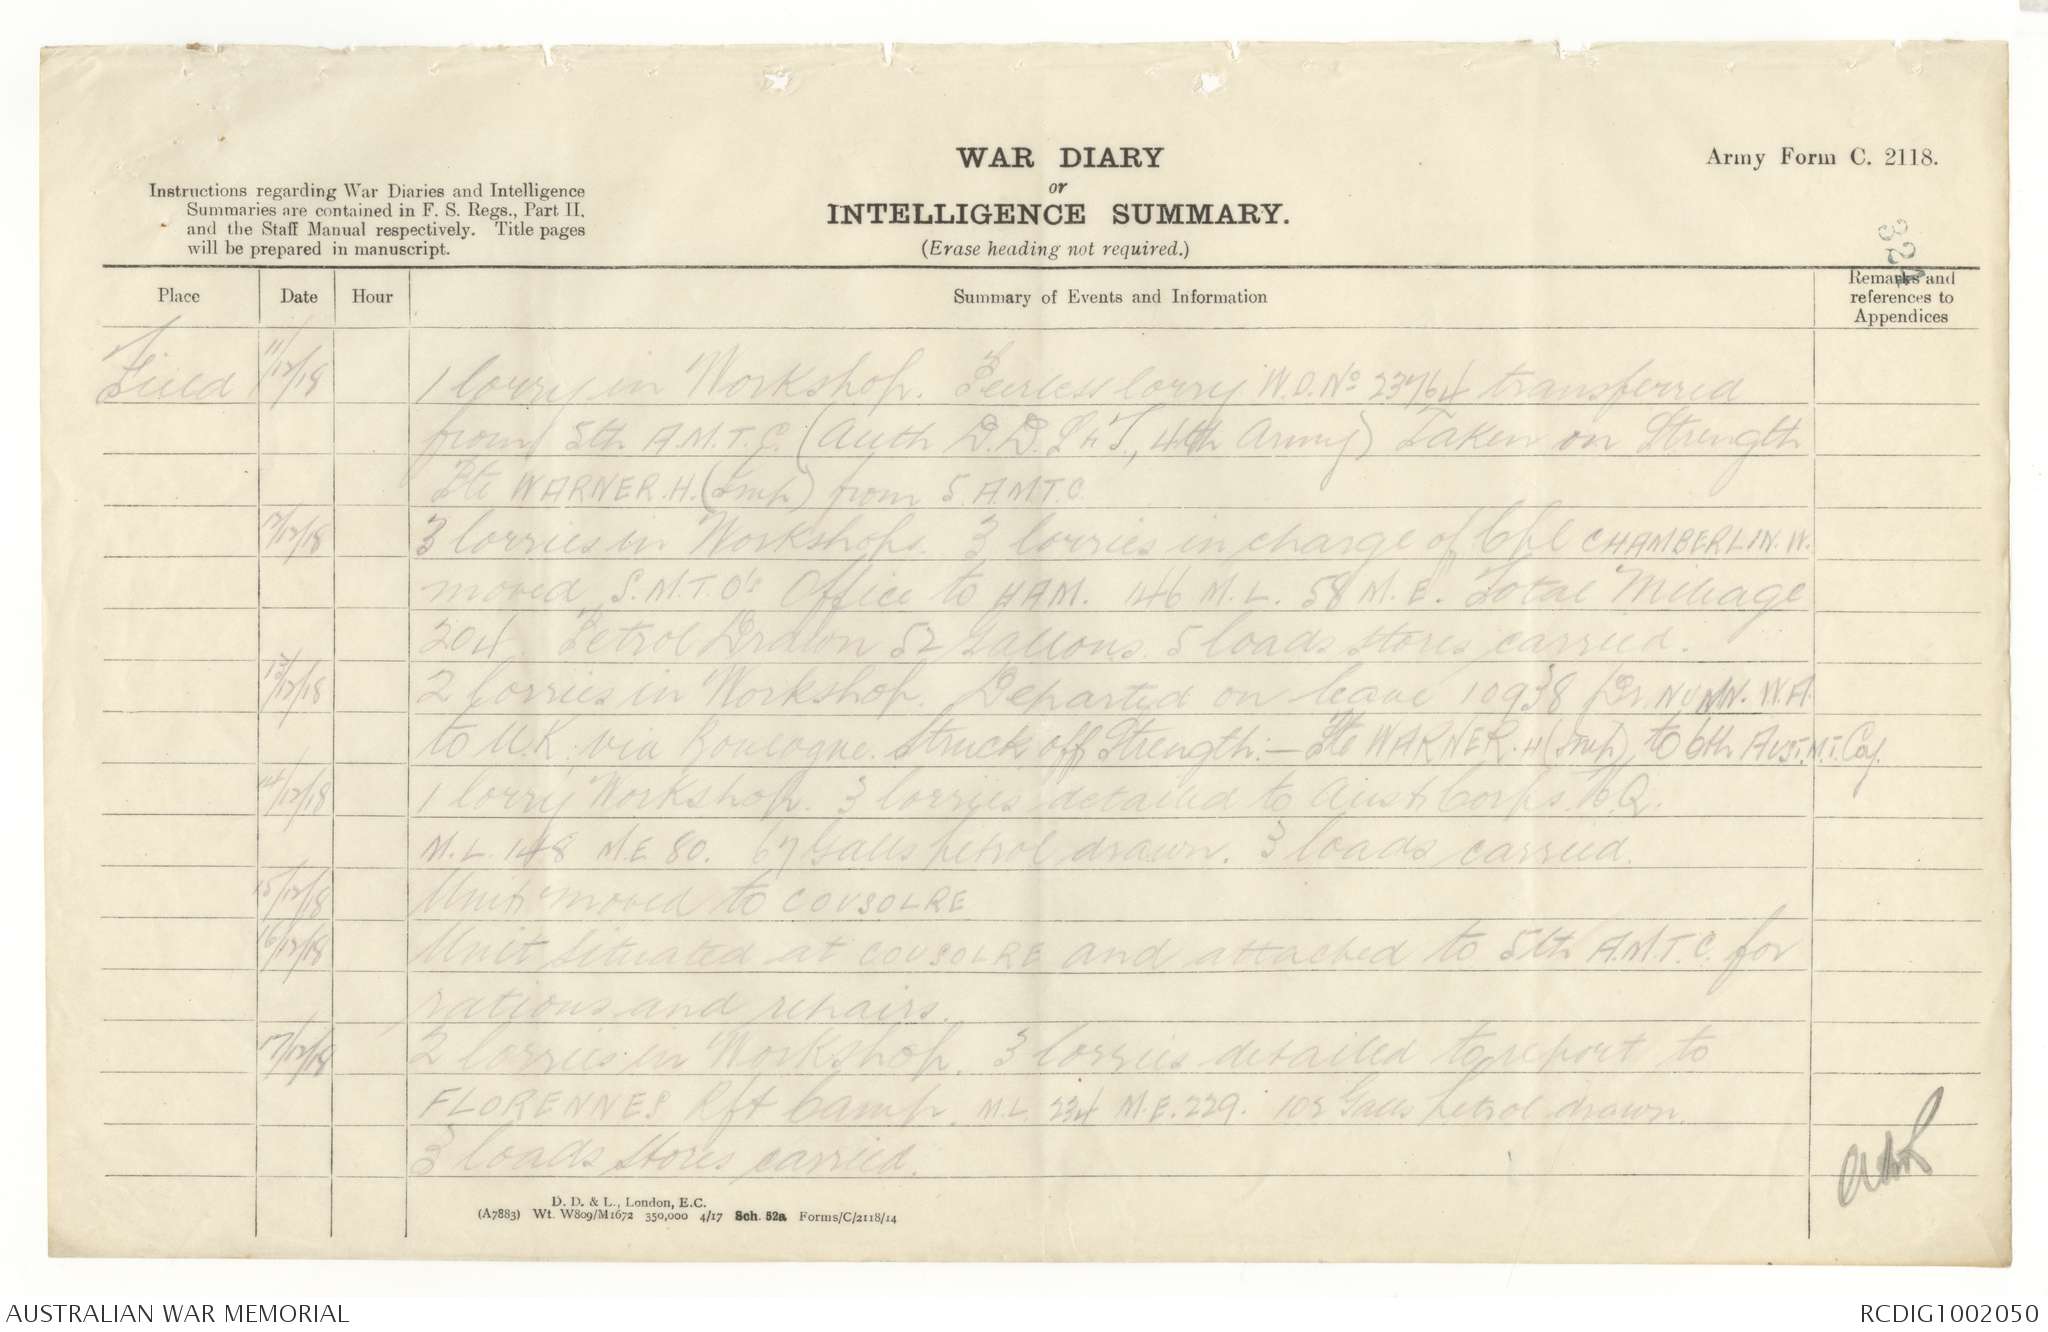 WAR DIARY
or
INTELLIGENCE SUMMARY.
(Erase heading not required.)
Army Form C. 2118.
Instructions regarding War Diaries and Intelligence
Summaries are contained in F. S. Regs., Part II.
and the Staff Manual respectively. Title pages
will be prepared in manuscript.
Place Date Hour Summary of Events and Information Remarks and references to Appendices
Field 11/12/18 1 lorry in Workshop. Peerless lorry W.D. No 23764 transferred
from 5th A.M.T.C. (Auth D.D.S & T., 4th Army) Taken on Strength
Pte WARNER. H. (Imp) from 5. A.M.T.C.
12/12/18 3 lorries in Workshops. 3 lorries in charge of Cpl CHAMBERLIN. W.
moved S.M.T.O's Office to HAM. 146 M.L. 58 M.E. Total Mileage
204. Petrol Drawn 52 gallons. 5 loads stores carried.
13/12/18 2 lorries in Workshop. Departed on leave 10938 Dr. NUNN. W.A.
to U.K. via Boulogne. Struck off Strength:— Pte WARNER. H (Imp) to 6th Aust. M.T. Coy.
14/12/18 1 lorry Workshop. 3 lorries detailed to Aust Corps. H.Q.
M.L. 148 M.E 80. 67 Galls petrol drawn. 3 loads carried.
15/12/18 Unit moved to COUSOLRE
16/12/18 Unit situated at COUSOLRE and attached to 5th A.M.T.C. for
rations and repairs.
17/12/18 2 lorries in Workshop. 3 lorries detailed to report to
FLORENNES Rft Camp. M.L. 234 M.E. 229. 102 Galls petrol drawn.
3 loads stores carried.
D. D. & L., London, E.C.
(A7883) Wt. W809/M1672 350,000 4/17 Sch. 52a Forms/C/2118/14
AUSTRALIAN WAR MEMORIAL
RCDIG1002050